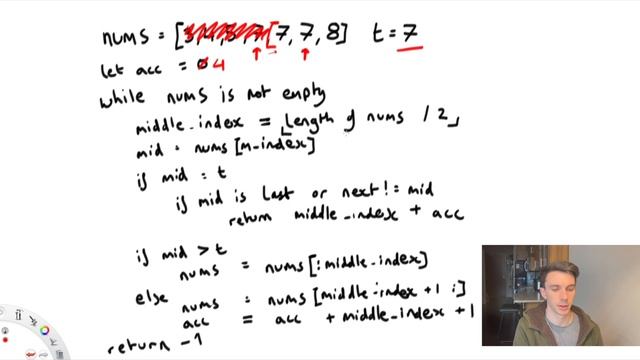 nums = [3,4,5,7 [7, 7, 8] t = 7
let acc = 0 4
while nums is not empty
middle_index = ⌊length of nums / 2⌋
mid = nums [m-index]
if mid = t
if mid is last or next != mid
return middle_index + acc
if mid > t
nums = nums[:middle_index]
else nums = nums [middle_index +1 :]
acc = acc + middle_index + 1
return -1